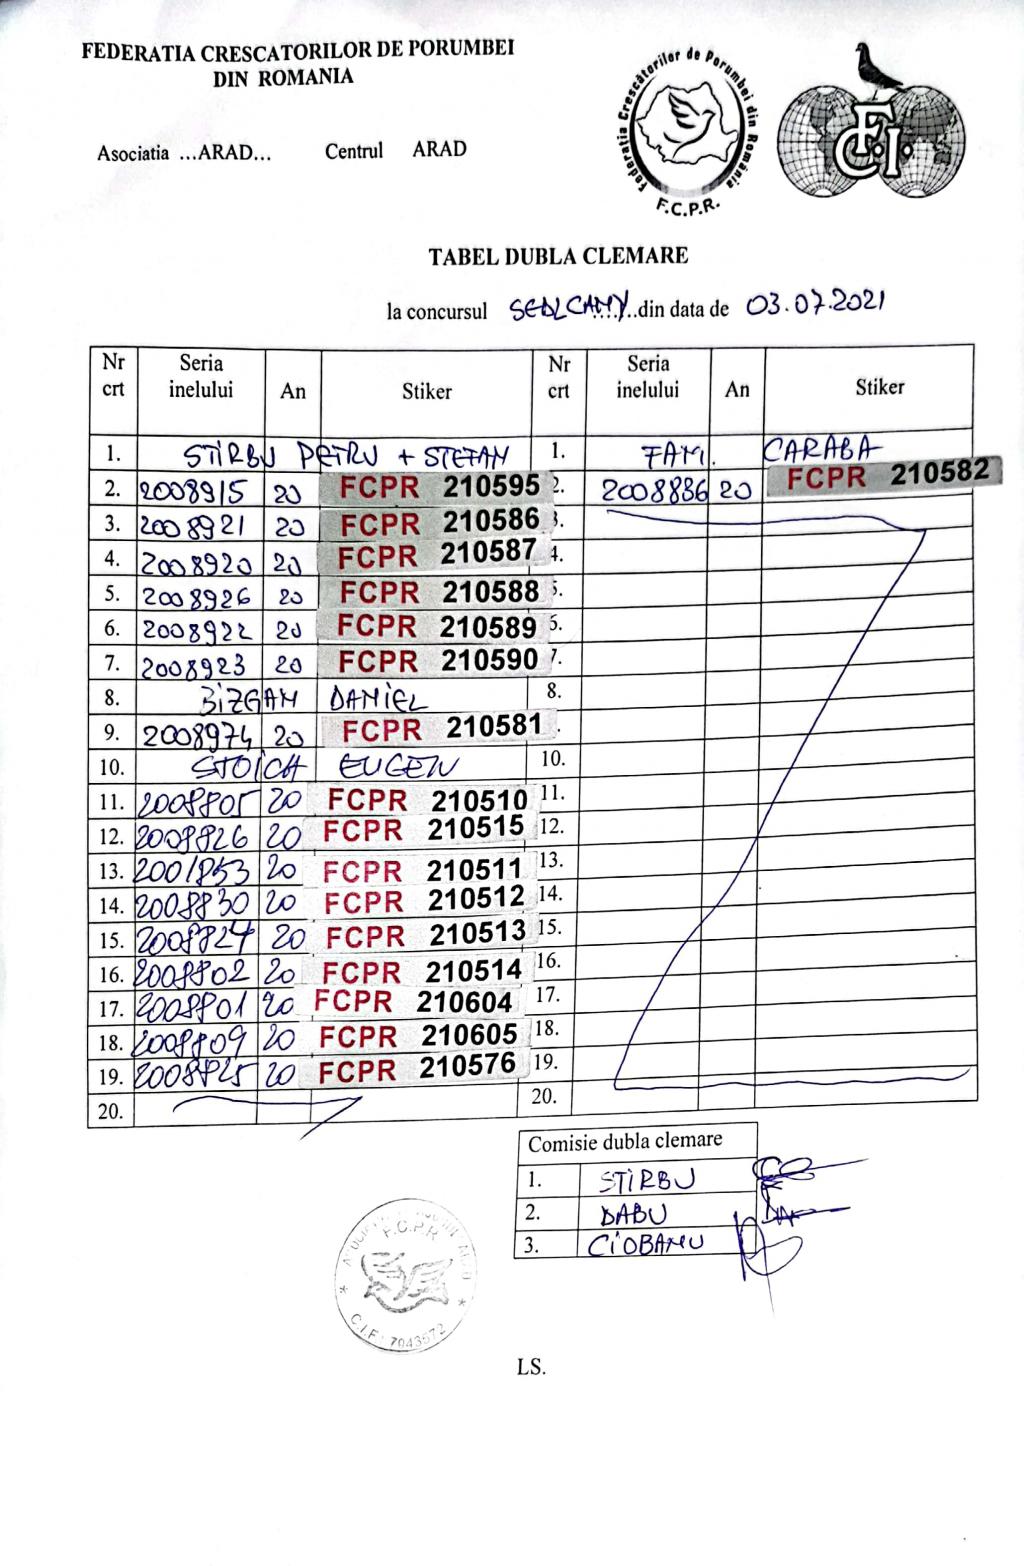 FEDERATIA CRESCATORILOR DE PORUMBEI
DIN ROMANIA
Federatia Crescătorilor de Porumbei din România
F.C.P.R.
F.C.I.
Asociatia ...ARAD... Centrul ARAD
TABEL DUBLA CLEMARE
la concursul SEDLCAMY..din data de 03.07.2021
Nr crt Seria inelului An Stiker Nr crt Seria inelului An Stiker
1. STIRBU PETRU + STEFAN 1. FAM. CARABA
2. 2008915 20 FCPR 210595 2. 2008886 20 FCPR 210582
3. 2008921 20 FCPR 210586 3.
4. 2008920 20 FCPR 210587 4.
5. 2008926 20 FCPR 210588 5.
6. 2008922 20 FCPR 210589 6.
7. 2008923 20 FCPR 210590 7.
8. BIZGAN DANIEL 8.
9. 2008974 20 FCPR 210581
10. STOICA EUGEN 10.
11. 2008805 20 FCPR 210510 11.
12. 2008826 20 FCPR 210515 12.
13. 2001853 20 FCPR 210511 13.
14. 2008830 20 FCPR 210512 14.
15. 2008827 20 FCPR 210513 15.
16. 2008802 20 FCPR 210514 16.
17. 2008801 20 FCPR 210604 17.
18. 2008809 20 FCPR 210605 18.
19. 2008825 20 FCPR 210576 19.
20. 20.
Comisie dubla clemare
1. STIRBU
2. DABU
3. CIOBANU
F.C.P.R.
C.I.F.: 7043572
LS.